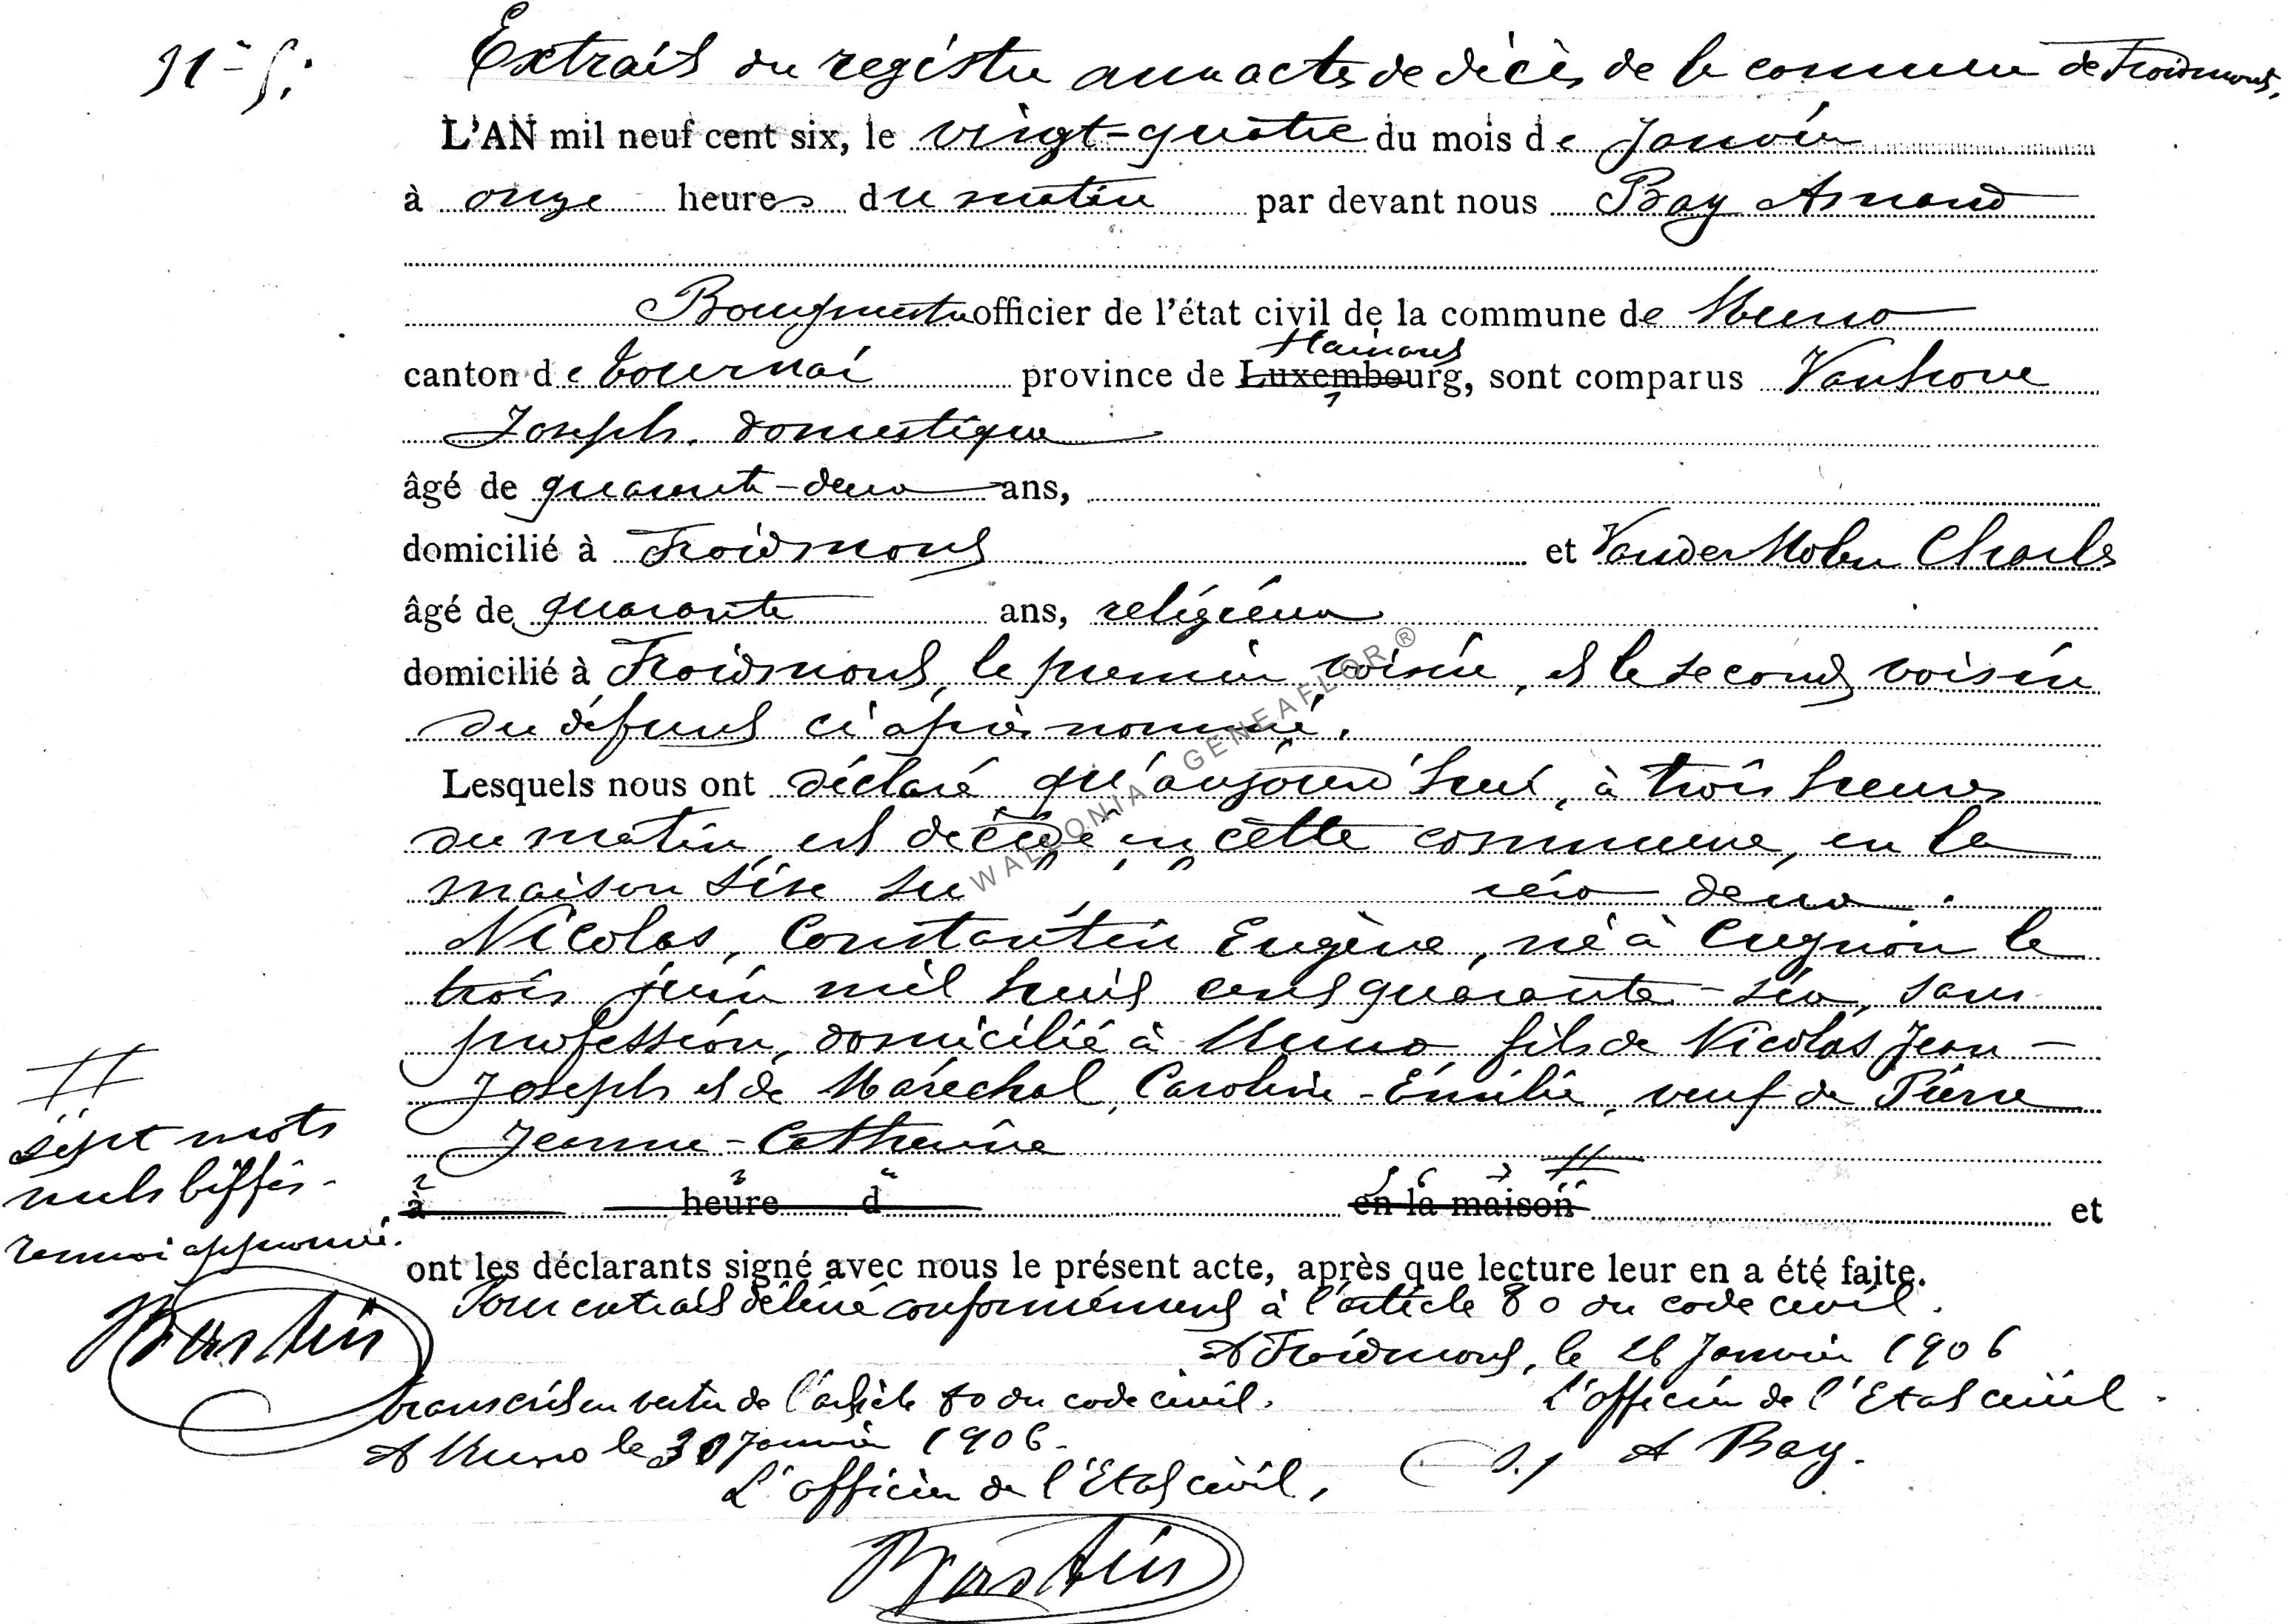 N° 5.
Extrait du registre aux actes de décès de la commune de Froidmont.
L'AN mil neuf cent six, le vingt-quatre du mois de Janvier
à onze heures du matin par devant nous Bay Armand
Bourgmestre officier de l'état civil de la commune de Muno
canton de Tournai province de Luxembourg, sont comparus Vanhove
Hainaut
Joseph, domestique
âgé de quarante-deux ans,
domicilié à Froidmont et Vander Molen Charles
âgé de quarante ans, religieux
domicilié à Froidmont, le premier voisin, et le second voisin
du défunt ci après nommé.
Lesquels nous ont déclaré qu'aujourd'hui, à trois heures
du matin, est décédé en cette commune, en la
maison sise rue n° deux.
Nicolas, Constantin Eugène, né à Cugnon le
trois juin mil huit cent quarante-six, sans
profession, domicilié à Muno, fils de Nicolas Jean-
Joseph et de Maréchal, Caroline-Emilie, veuf de Pierre
Jeanne-Catherine
à heure d en la maison et
ont les déclarants signé avec nous le présent acte, après que lecture leur en a été faite.
Pour extrait délivré conformément à l'article 80 du code civil.
A Froidmont, le 26 Janvier 1906
L'officier de l'Etat civil.
(s.) A Bay.
transcrit en vertu de l'article 80 du code civil.
A Muno le 30 Janvier 1906.
L'officier de l'Etat civil,
Bastin
sept mots
nuls biffés
renvoi approuvé.
Bastin
WALLONIA GENEAFLOR ®